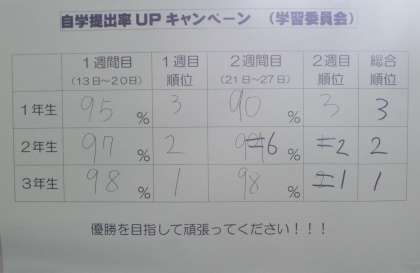 自学提出率UPキャンペーン (学習委員会)
1週間目 (13日~20日) 1週目順位 2週間目 (21日~27日) 2週目順位 総合順位
1年生 95% 3 90% 3 3
2年生 97% 2 96% 2 2
3年生 98% 1 98% 1 1
優勝を目指して頑張ってください!!!